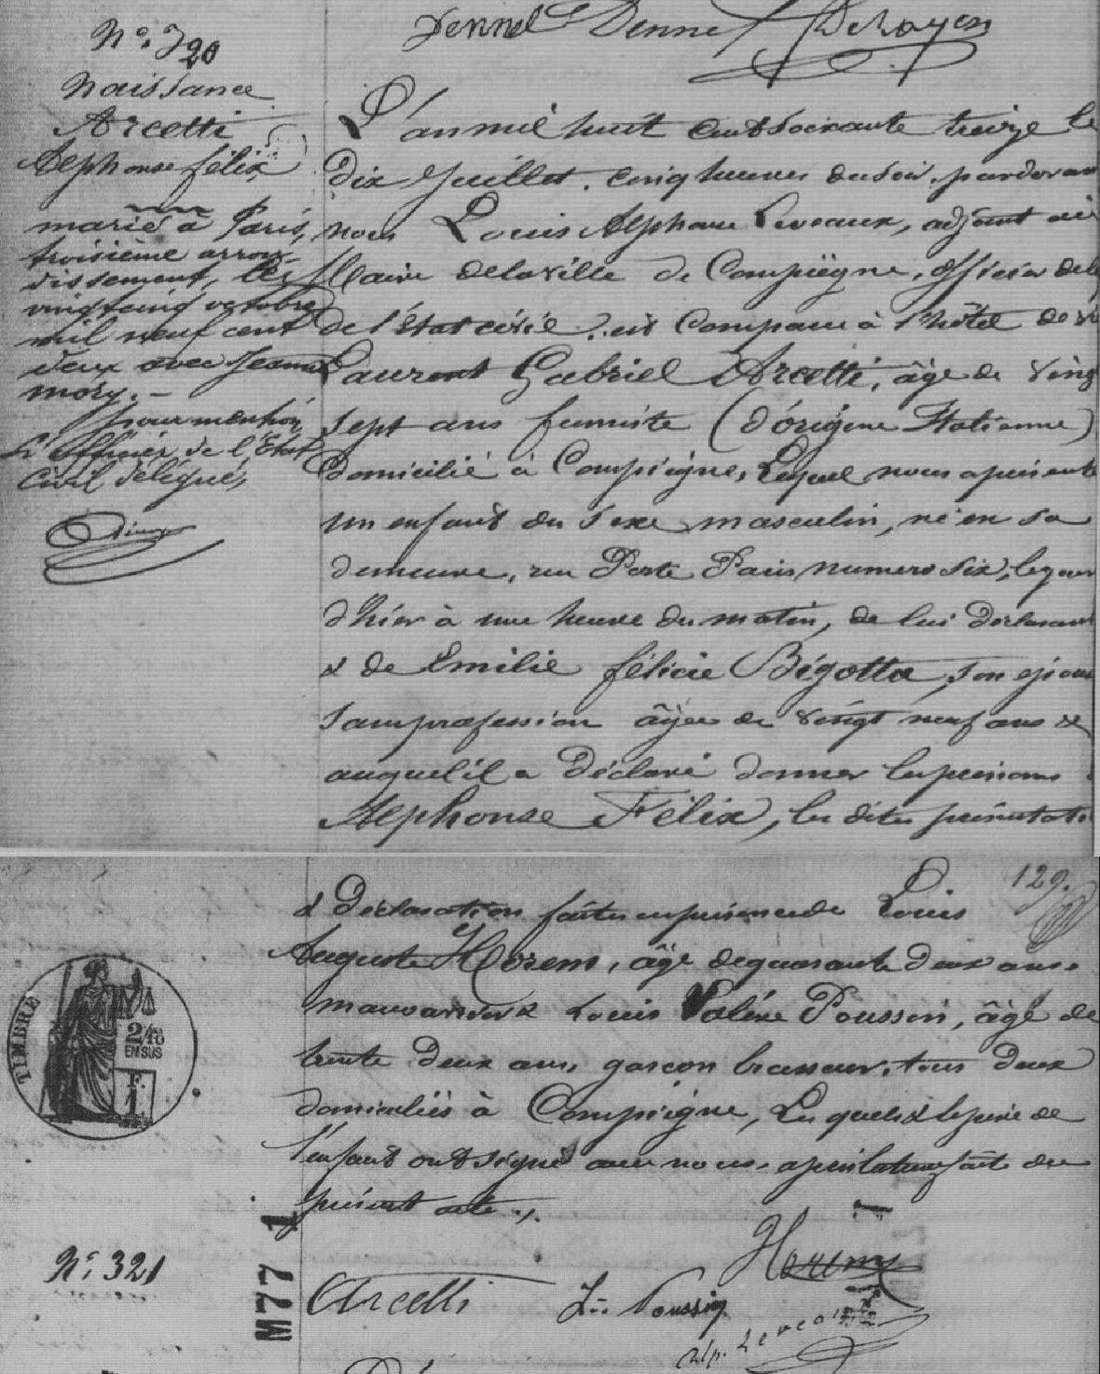 Dennel Dennel DeRoyen
N° 320
Naissance
Arcetti
Alphonse félix
marié à Paris,
troisième arron-
dissement, le
vingt cinq octobre
mil neuf cent
deux avec Jeanne
Mory. —
pour mention
L'officier de l'Etat
Civil délégué,
L'an mil huit cent soixante treize le
dix Juillet, cinq heures du soir, pardevant
nous Louis Alphonse Leveaux, adjoint au
Maire de la ville de Compiègne, officier de l
de l'état civil, est comparu à l'hôtel de vi
Laurent Gabriel Arcetti, âgé de vingt
sept ans fumiste (d'origine Italienne)
domicilié à Compiègne, Lequel nous a présenté
un enfant du sexe masculin, né en sa
demeure, rue Porte Paris numero six, le jour
d'hier à une heure du matin, de lui déclarant
& de Emilie félicie Bégotta, son épouse
sans profession âgée de vingt neuf ans &
auquel il a déclaré donner les prénoms
Alphonse Félix, les dites présentation
129.
& déclaration faites en présence de Louis
Auguste Horem, âgé de quarante deux ans,
& Louis Valère Poussin, âgé de
trente deux ans, garçon brasseur, tous deux
domiciliés à Compiègne, Les quels & le père de
l'enfant ont signé avec nous, après lecture faite du
présent acte ./.
TIMBRE
2/10
EN SUS
F.
1
M77 1
N° 321
Horem
Arcetti
Ls Poussin
Alp. Leveaux